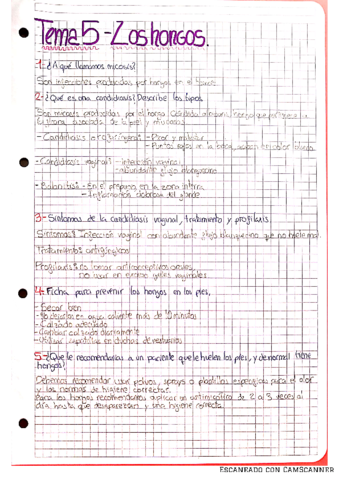 Tema 5 - Los hongos.
1- ¿A qué llamamos micosis?
Son infecciones producidas por hongos en el
2- ¿Qué es una candidiasis? Describe los tipos
Son micosis producidas por el hongo Candida albicans, hongo que pertenece a
la flora de la piel y mucosas
- Candidiasis orofaríngea: - Picor y malestar
- Puntos rojos en la boca, color blanco
- Candidiasis vaginal: - infección vaginal
- abundante flujo blanquecino
- Balanitis: - En el prepucio en la zona íntima
- Inflamación dolorosa del glande
3- Síntomas de la candidiasis vaginal, tratamiento y profilaxis
Síntomas: Infección vaginal con abundante flujo blanquecino que no huele mal
Tratamiento: antifúngicos
Profilaxis: no tomar anticonceptivos orales,
no usar en exceso geles vaginales
4- Ficha para prevenir los hongos en los pies,
- Secar bien
- No dejarlos en agua caliente más de 10 minutos
- Calzado adecuado
- Cambiar calzado diariamente
- Utilizar zapatillas en duchas de vestuarios
5- ¿Que le recomendarías a un paciente que le huelen los pies, y de normal tiene
hongos?
Debemos recomendar usar polvos, sprays o plantillas específicas para el olor
y las normas de higiene correctas.
Para los hongos recomendaremos aplicar un antimicótico de 2 a 3 veces al
día hasta que desaparezcan y una higiene correcta.
ESCANEADO CON CAMSCANNER